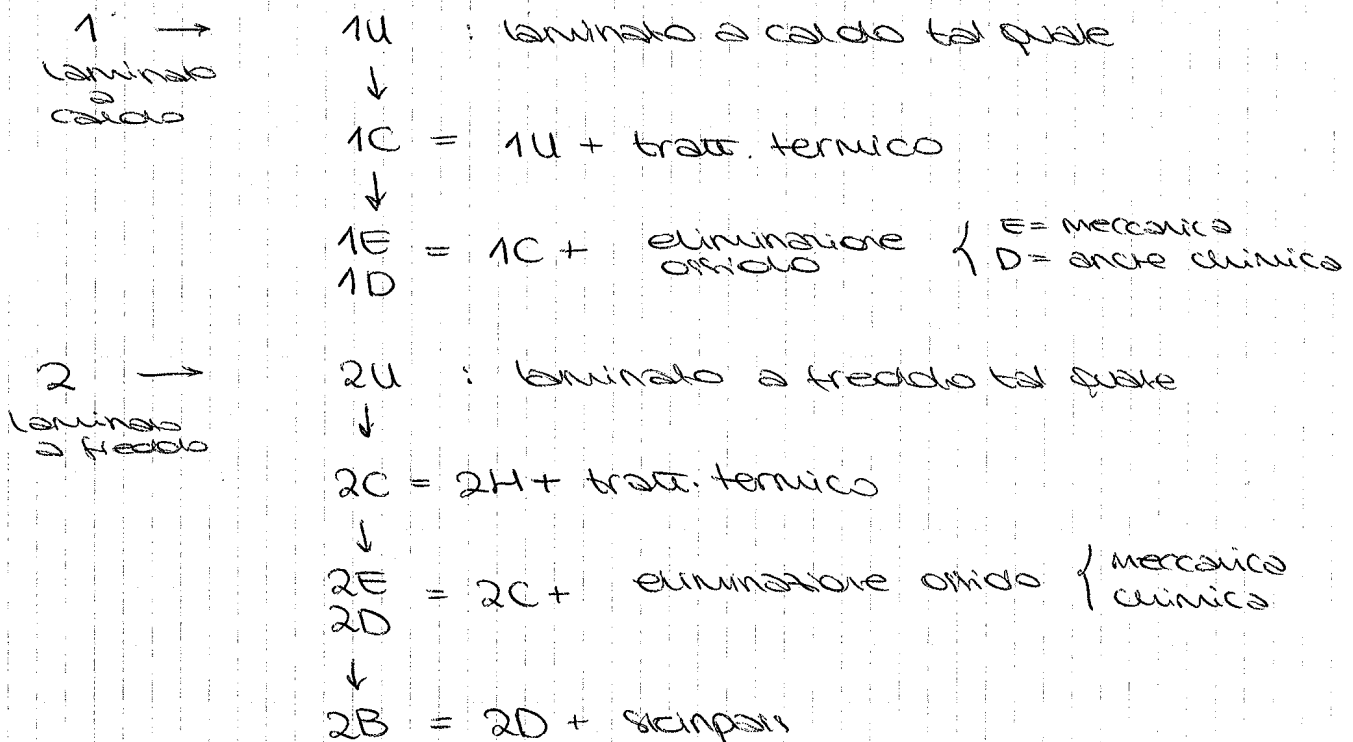 1 → 1U : laminato a caldo tal quale
laminato
a
caldo
↓
1C = 1U + tratt. termico
↓
1E
1D = 1C + eliminazione ossido { E = meccanica
D = anche chimica
2 → 2U : laminato a freddo tal quale
laminato
a freddo
↓
2C = 2H + tratt. termico
↓
2E
2D = 2C + eliminazione ossido { meccanica
chimica
↓
2B = 2D + skinpass